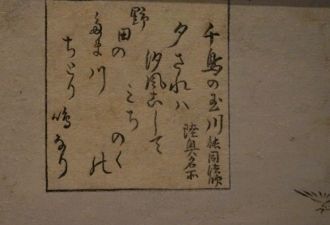 千鳥の玉川 能因法師
陸奥名所
夕されハ
汐風こして
みちのく
の
野田の
多ま川
ちとり鳴なり